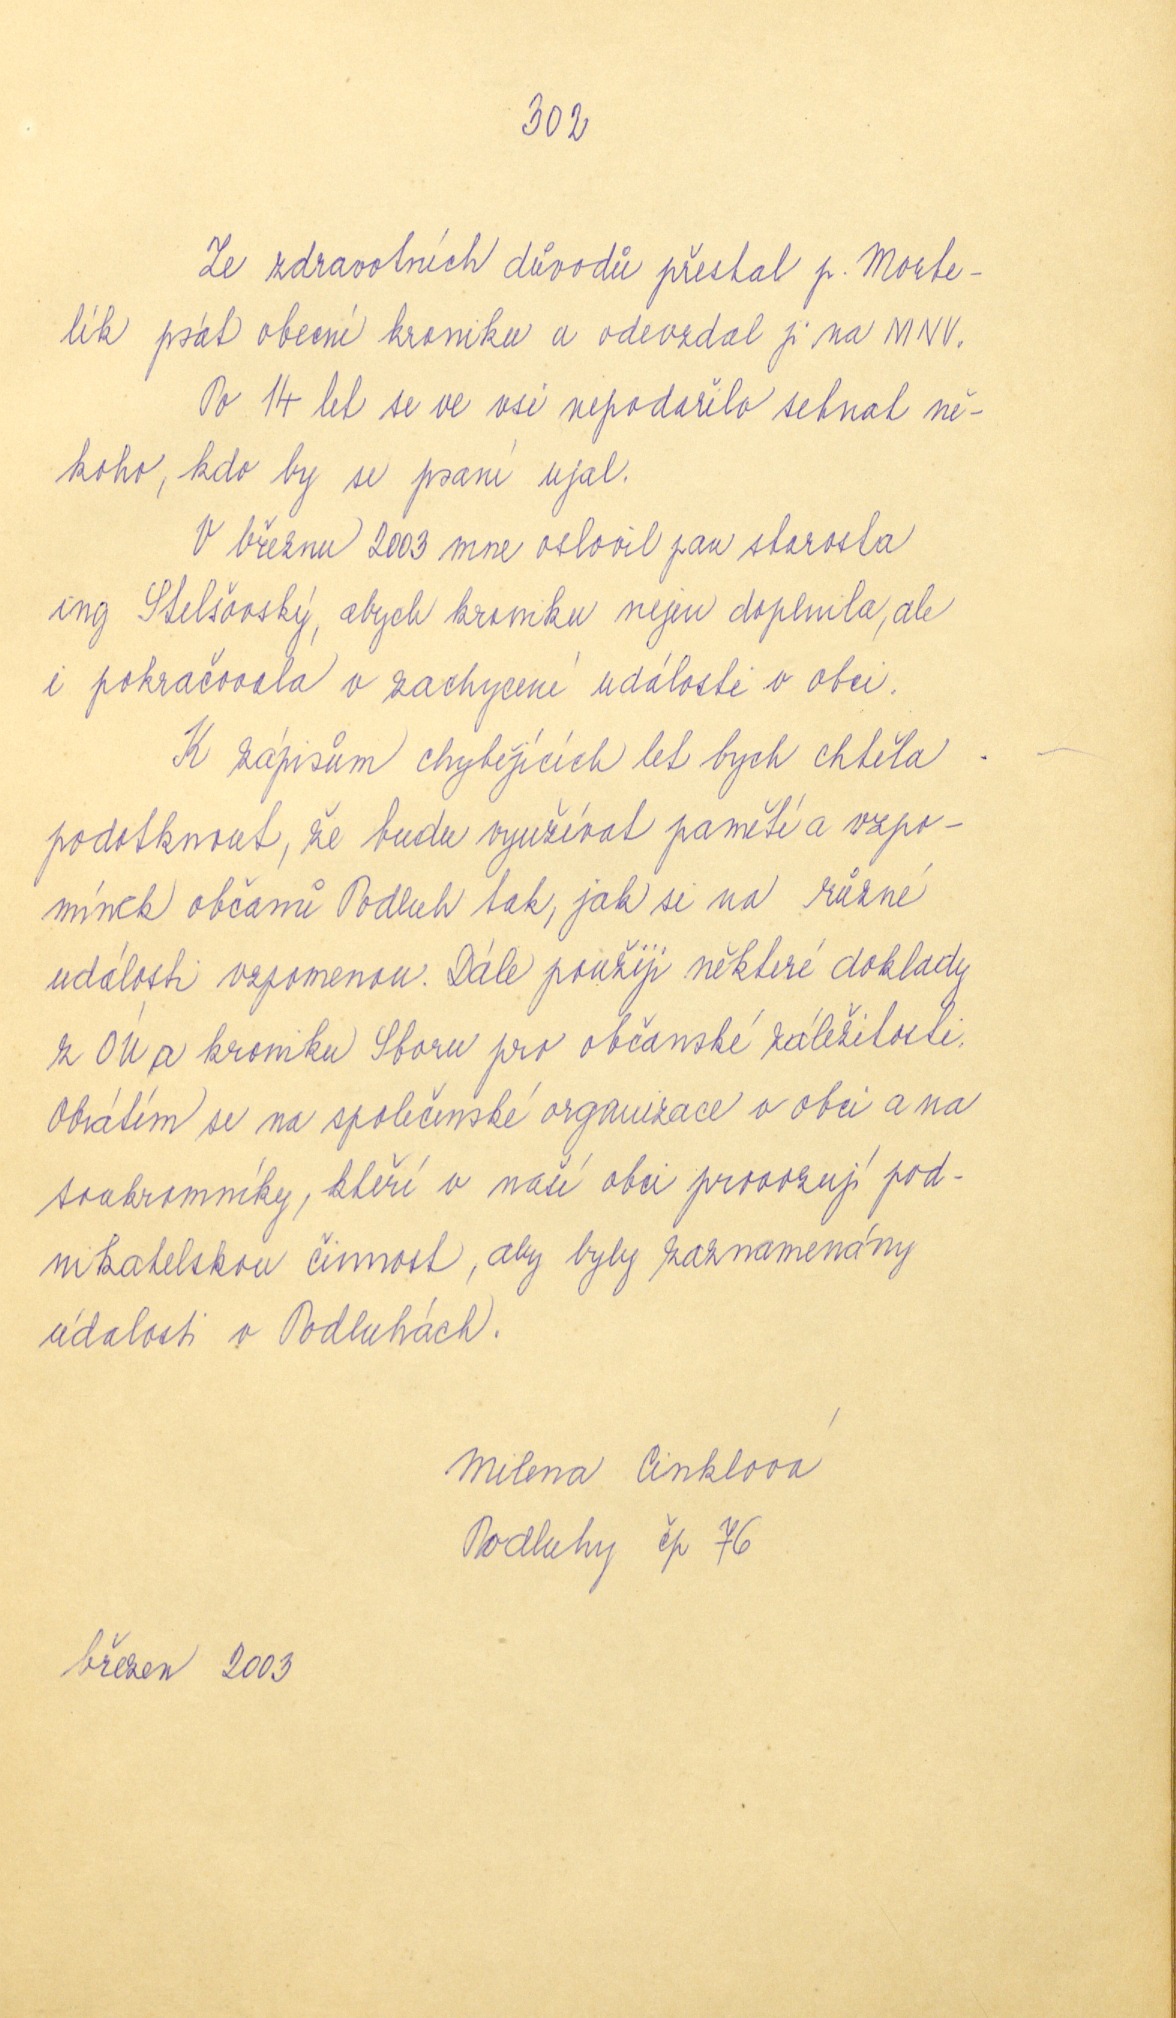 302
Ze zdravotních důvodů přestal p. Morte-
lík psát obecní kroniku a odevzdal ji na MNV.
Po 14 let se ve vsi nepodařilo sehnat ně-
koho, kdo by se psaní ujal.
V březnu 2003 mne oslovil pan starosta
ing Stelšovský, abych kroniku nejen doplnila, ale
i pokračovala v zachycení události v obci.
K zápisům chybějících let bych chtěla
podotknout, že budu využívat pamětí a vzpo-
mínek občanů Podluh tak, jak si na různé
události vzpomenou. Dále použiji některé doklady
z OÚ a kroniku Sboru pro občanské záležitosti.
Obrátím se na společenské organizace v obci a na
soukromníky, kteří v naší obci provozují pod-
nikatelskou činnost, aby byly zaznamenány
údalosti v Podluhách.
Milena Cinklová
Podluhy čp 76
březen 2003